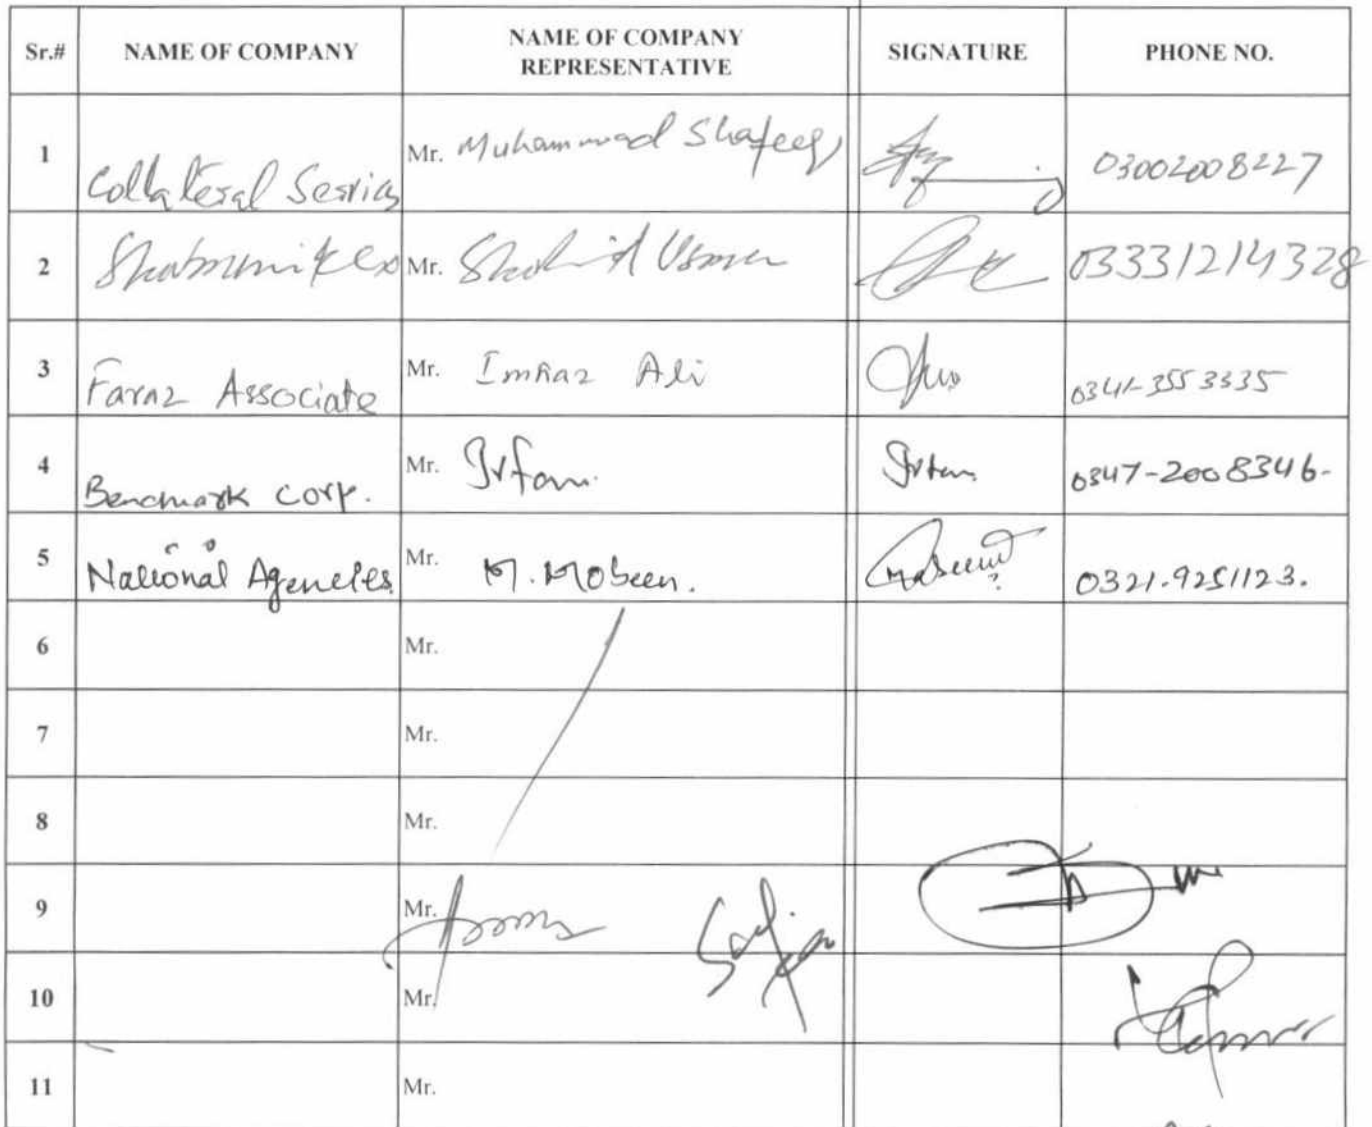 Sr.# NAME OF COMPANY NAME OF COMPANY REPRESENTATIVE SIGNATURE PHONE NO.
1 Collateral Services Mr. Muhammad Shafeeq 03002008227
2 Mr. Shahid Usman 03331214328
3 Faraz Associate Mr. Imraz Ali 0341-3553335
4 Benchmark Corp. Mr. Irfan. Irfan 0347-2008346-
5 National Agencies Mr. M. Mobeen. 0321-9251123.
6 Mr.
7 Mr.
8 Mr.
9 Mr.
10 Mr.
11 Mr.